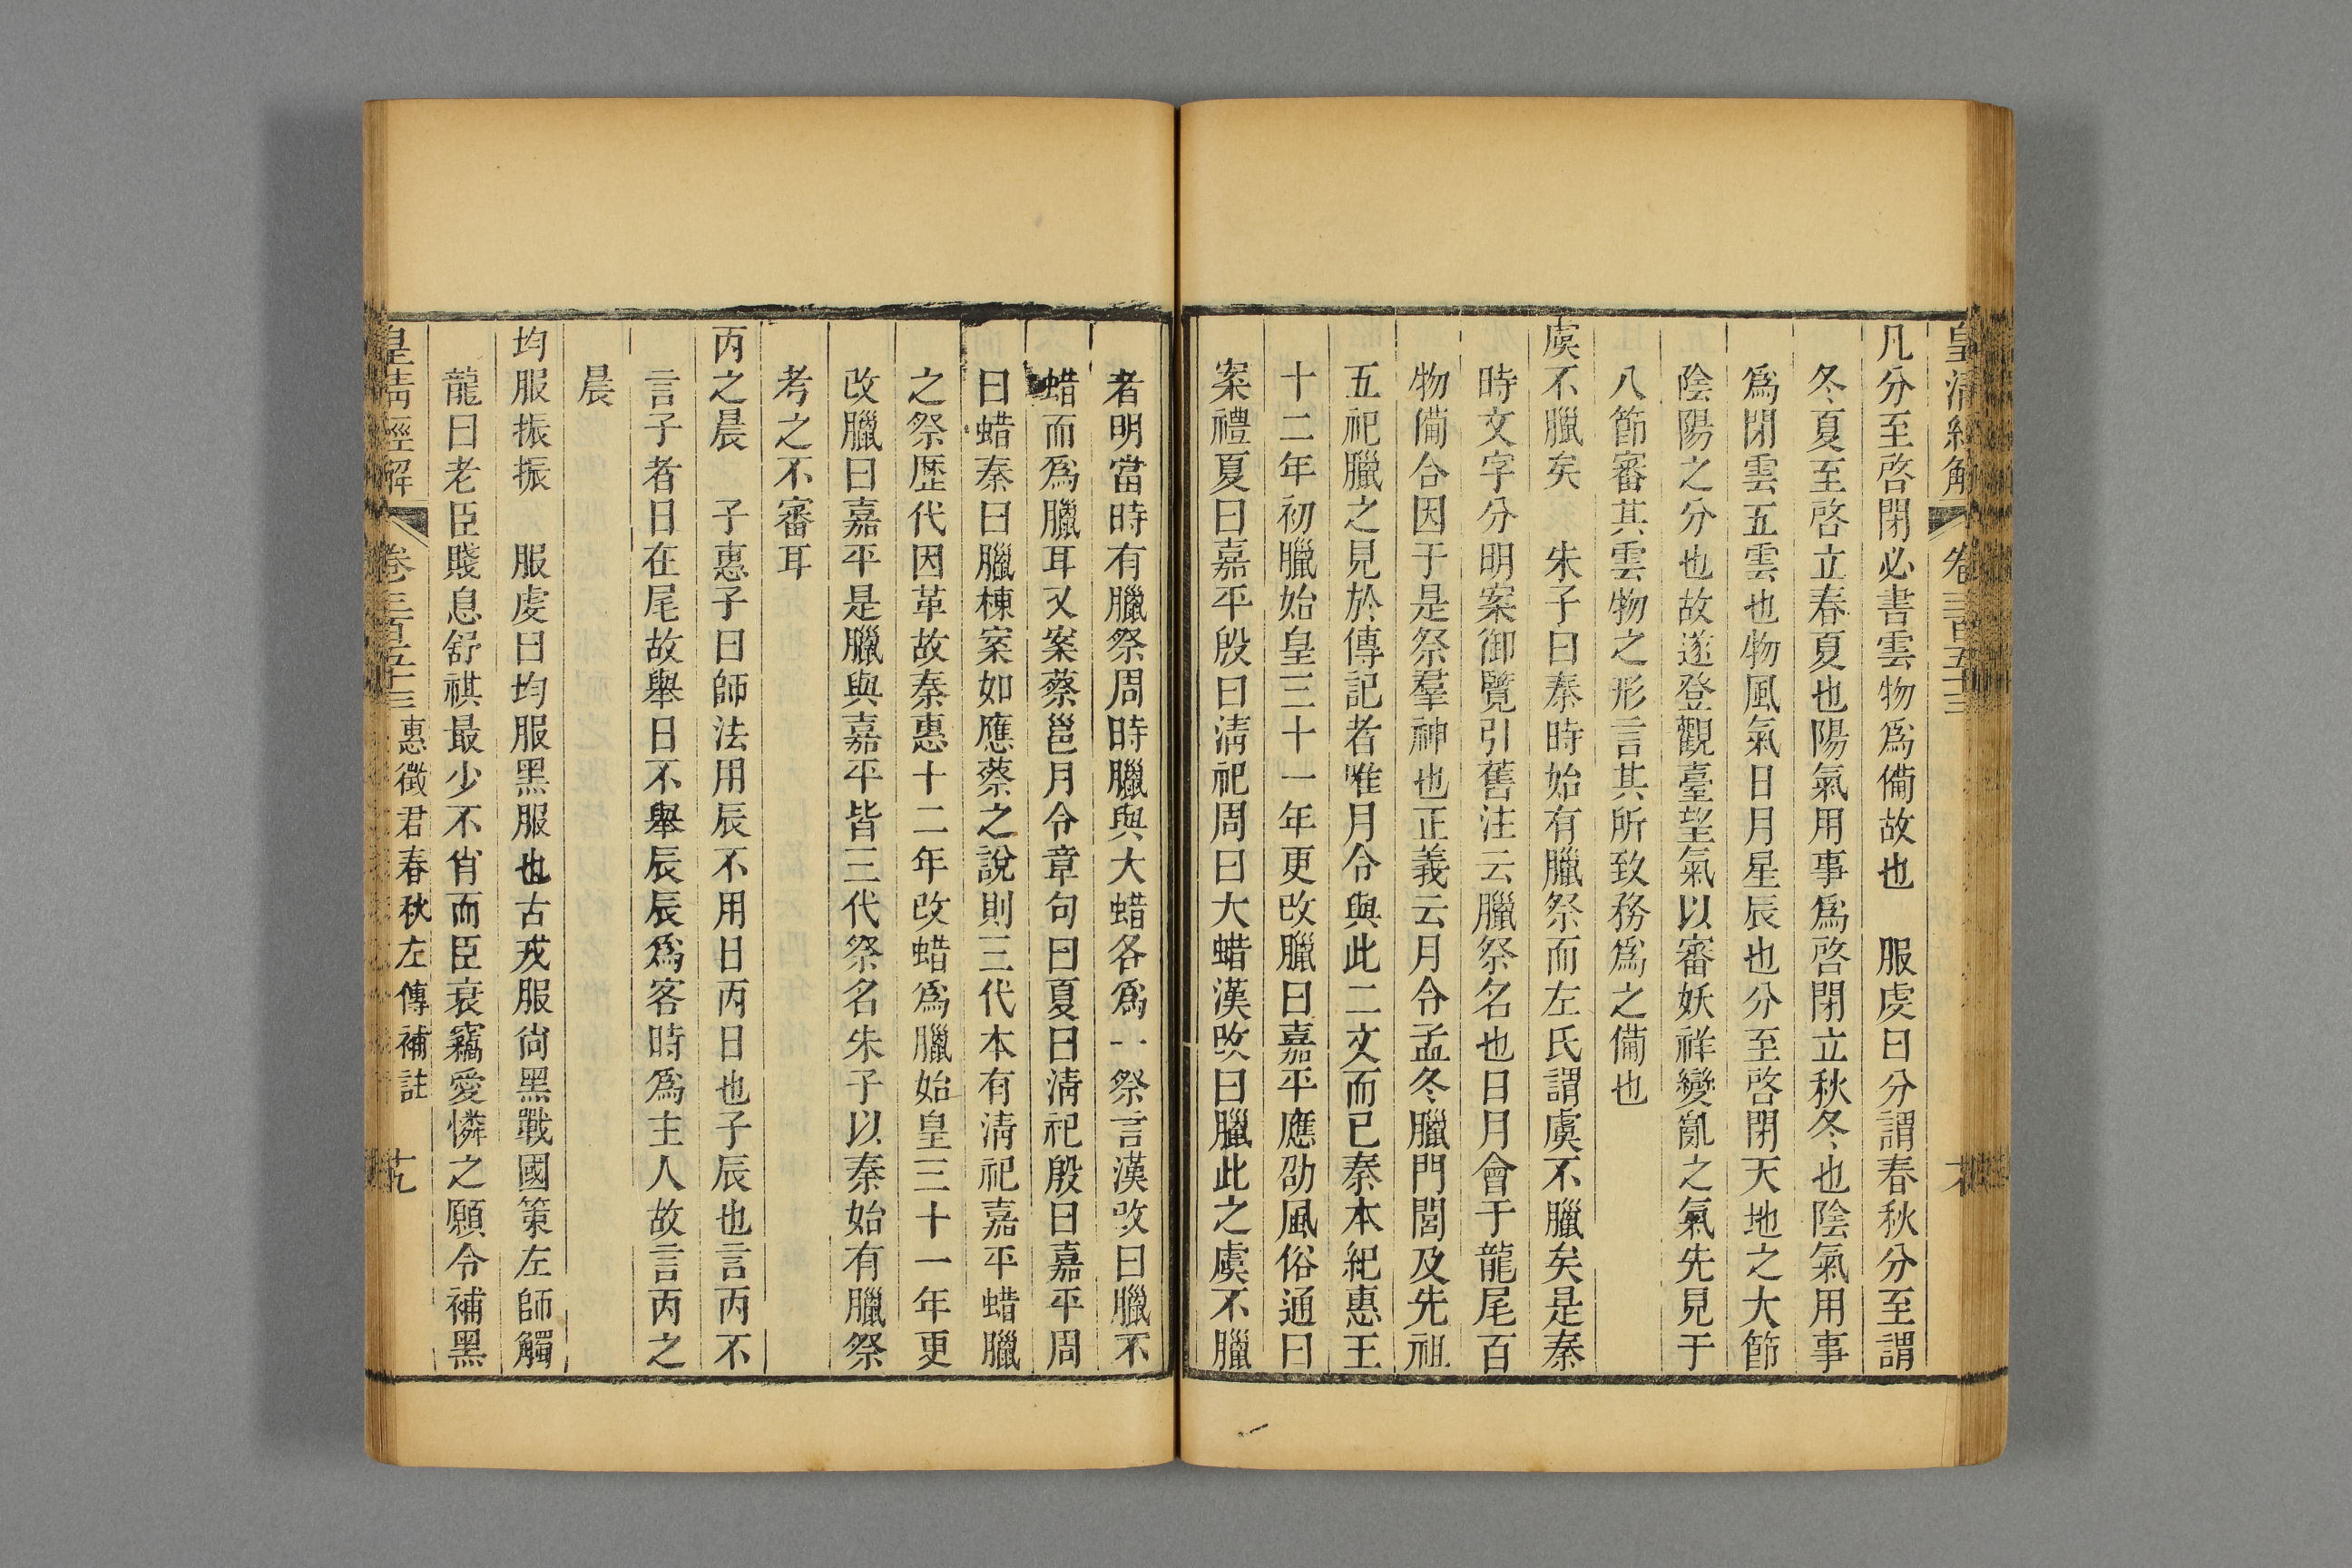 皇清經解 卷三百五十三
凡分至啓閉必書雲物爲備故也　服虔曰分謂春秋分至謂
冬夏至啓立春夏也陽氣用事爲啓閉立秋冬也陰氣用事
爲閉雲五雲也物風氣日月星辰也分至啓閉天地之大節
陰陽之分也故遂登觀臺望氣以審妖祥變亂之氣先見于
八節審其雲物之形言其所致務爲之備也
虞不臘矣　朱子曰秦時始有臘祭而左氏謂虞不臘矣是秦
時文字分明案御覽引舊注云臘祭名也日月會于龍尾百
物備合因于是祭羣神也正義云月令孟冬臘門閭及先祖
五祀臘之見於傳記者唯月令與此二文而已秦本紀惠王
十二年初臘始皇三十一年更改臘曰嘉平應劭風俗通曰
案禮夏曰嘉平殷曰淸祀周曰大蜡漢改曰臘此之虞不臘
者明當時有臘祭周時臘與大蜡各爲一祭言漢改曰臘不
蜡而爲臘耳又案蔡邕月令章句曰夏曰淸祀殷曰嘉平周
曰蜡秦曰臘棟案如應蔡之說則三代本有淸祀嘉平蜡臘
之祭歷代因革故秦惠十二年改蜡爲臘始皇三十一年更
改臘曰嘉平是臘與嘉平皆三代祭名朱子以秦始有臘祭
考之不審耳
丙之晨　子惠子曰師法用辰不用日丙日也子辰也言丙不
言子者日在尾故舉日不舉辰辰爲客時爲主人故言丙之
晨
均服振振　服虔曰均服黑服也古戎服尙黑戰國策左師觸
龍曰老臣賤息舒祺最少不肖而臣衰竊愛憐之願令補黑
皇清經解 卷三百五十三 惠徵君春秋左傳補註 十九